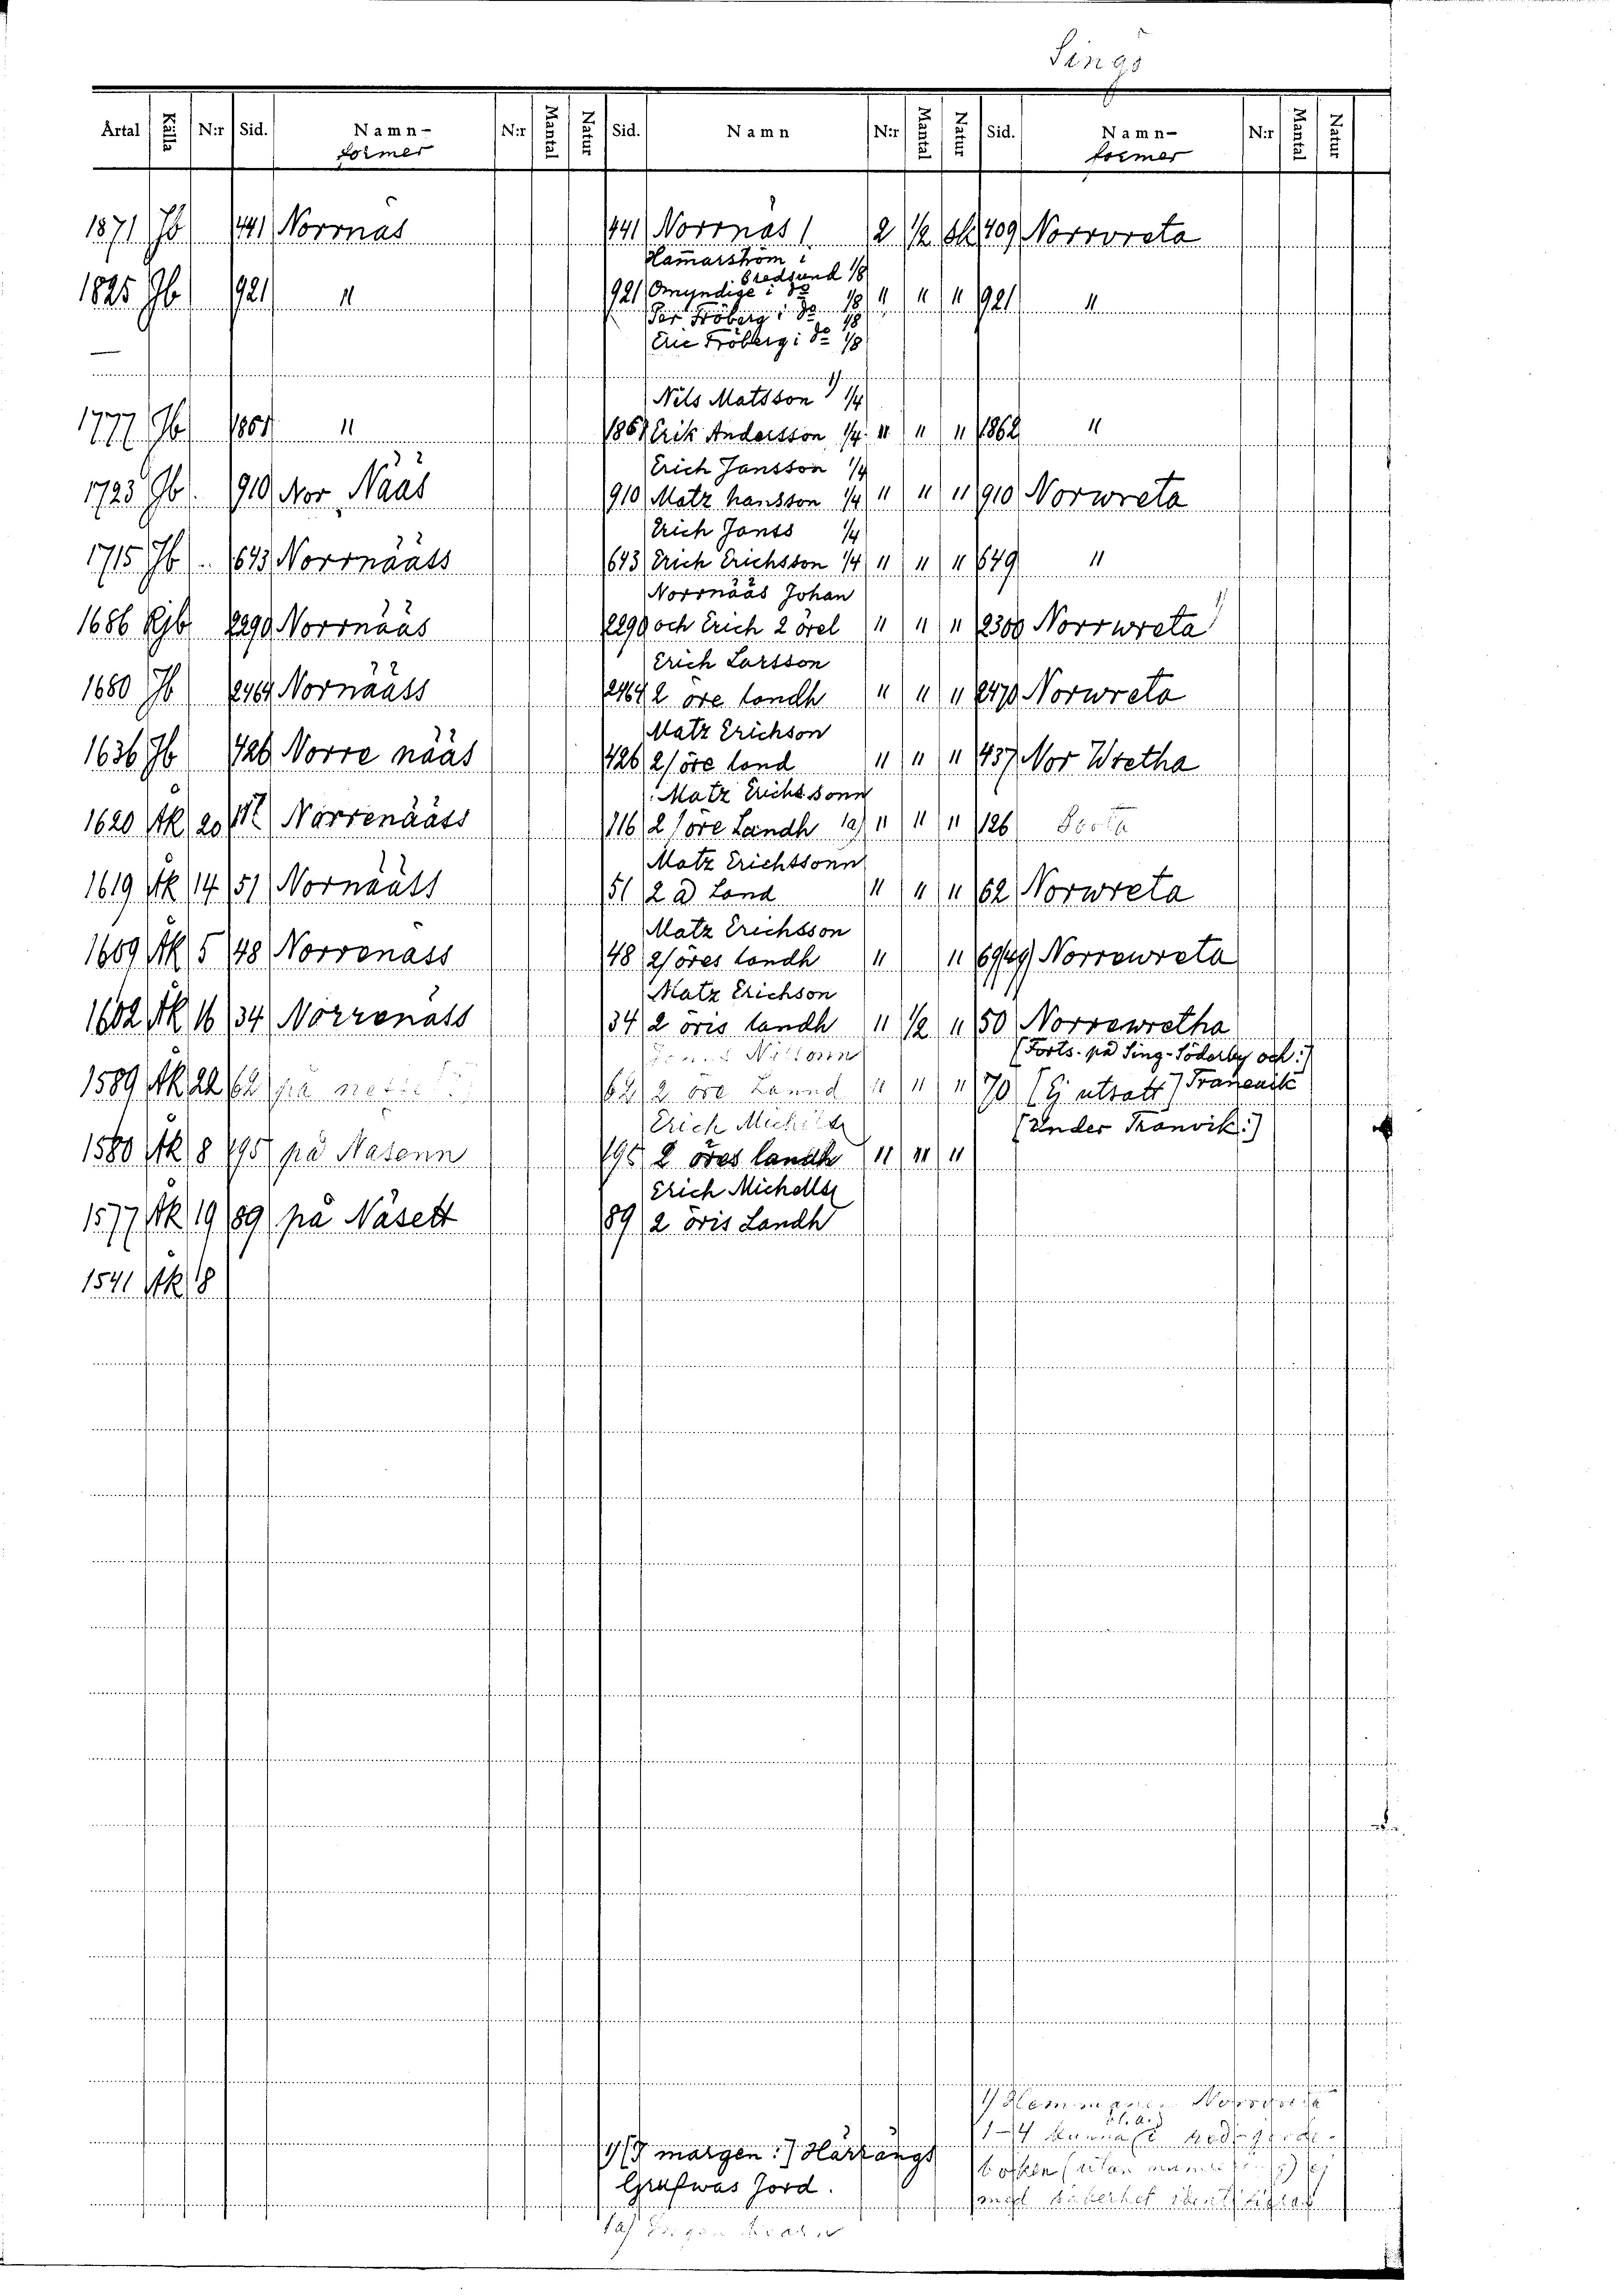 Singö
Årtal Källa N:r Sid. Namn- former N:r Mantal Natur Sid. Namn N:r Mantal Natur Sid. Namn- former N:r Mantal Natur
1871 Jb 441 Norrnäs 441 Norrnäs 1. 2 1/2 Sk 409 Norrvreta
Hamarström i
bredsund 1/8
1825 Jb 921 " 921 Omyndige i do 1/8 " " " 921 "
Per Fröberg i do 1/8
Eric Fröberg i do 1/8
Nils Matsson 1) 1/4
1777 Jb 1861 " 1861 Erik Andersson 1/4 " " " 1862 "
Erich Jansson 1/4
1725 Jb. 910 Nor Nääs 910 Matz hansson 1/4 " " " 910 Norwreta
Erich Janss 1/4
1715 Jb 643 Norrnääss 643 Erich Erichsson 1/4 " " " 649 "
Norrnääs Johan
1686 Rjb 2290 Norrnääs 2290 och Erich 2 örel " " " 2300 Norrwreta 1)
Erich Larsson
1680 Jb 2464 Nornääss 2464 2 öre landh " " " 2470 Norwreta
Matz Erichson
1636 Jb 426 Norre nääs 426 2/öre land " " " 437 Nor Wretha
Matz Erichssonn
1620 Åk 20 Norrenääss 116 2/öre Landh 1a) " " " 126
Matz Erichssonn
1619 Åk 14 51 Nornääss 51 2 ö Land " " " 62 Norwreta
Matz Erichsson
1609 Åk 5 48 Norrenäss 48 2/öres landh " " 69/49 Norrewreta
Matz Erichson
1602 Åk 16 34 Norrenäss 34 2 öris landh " 1/2 " 50 Norrewretha
(Forts. på Sing-Söderby och:)
1589 Åk 22 62 på 62 2 öre Lannd " " " 70 (Ej utsatt) Tranevik
Erich Michilss (Under Tranvik:)
1580 Åk 8 195 på Näsenn 195 2 öres landh " " "
Erich Michelss
1577 Åk 19 89 på Näsett 89 2 öris Landh
1541 Åk 18
1) Hemmanen Norrvreta
1-4 kunna i
1) (I margen:) Härfängs
Grefwas Jord.
med säkerhet identifieras
1a) Ingen